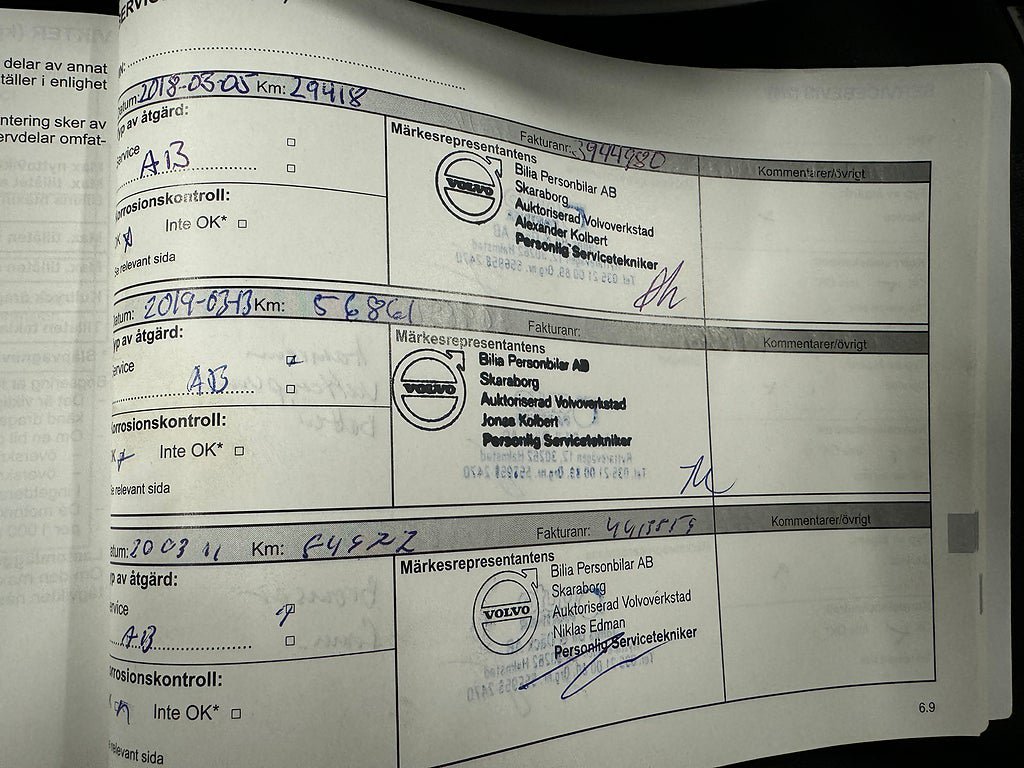 delar av annat
täller i enlighet
ntering sker av
ervdelar omfat-
atum: 2018-03-05 Km: 29418
Fakturanr: 3944980
Kommentarer/övrigt
yp av åtgärd:
ervice
AB
orrosionskontroll:
Inte OK*
e relevant sida
Märkesrepresentantens
VOLVO
Bilia Personbilar AB
Skaraborg
Auktoriserad Volvoverkstad
Alexander Kolbert
Personlig Servicetekniker
atum: 2019-03-13 Km: 56861
Fakturanr:
Kommentarer/övrigt
yp av åtgärd:
ervice
AB
orrosionskontroll:
Inte OK*
e relevant sida
Märkesrepresentantens
VOLVO
Bilia Personbilar AB
Skaraborg
Auktoriserad Volvoverkstad
Jonas Kolbert
Personlig Servicetekniker
atum: 2003 11 Km:
Fakturanr:
Kommentarer/övrigt
p av åtgärd:
ervice
AB
rrosionskontroll:
Inte OK*
relevant sida
Märkesrepresentantens
VOLVO
Bilia Personbilar AB
Skaraborg
Auktoriserad Volvoverkstad
Niklas Edman
Personlig Servicetekniker
6.9